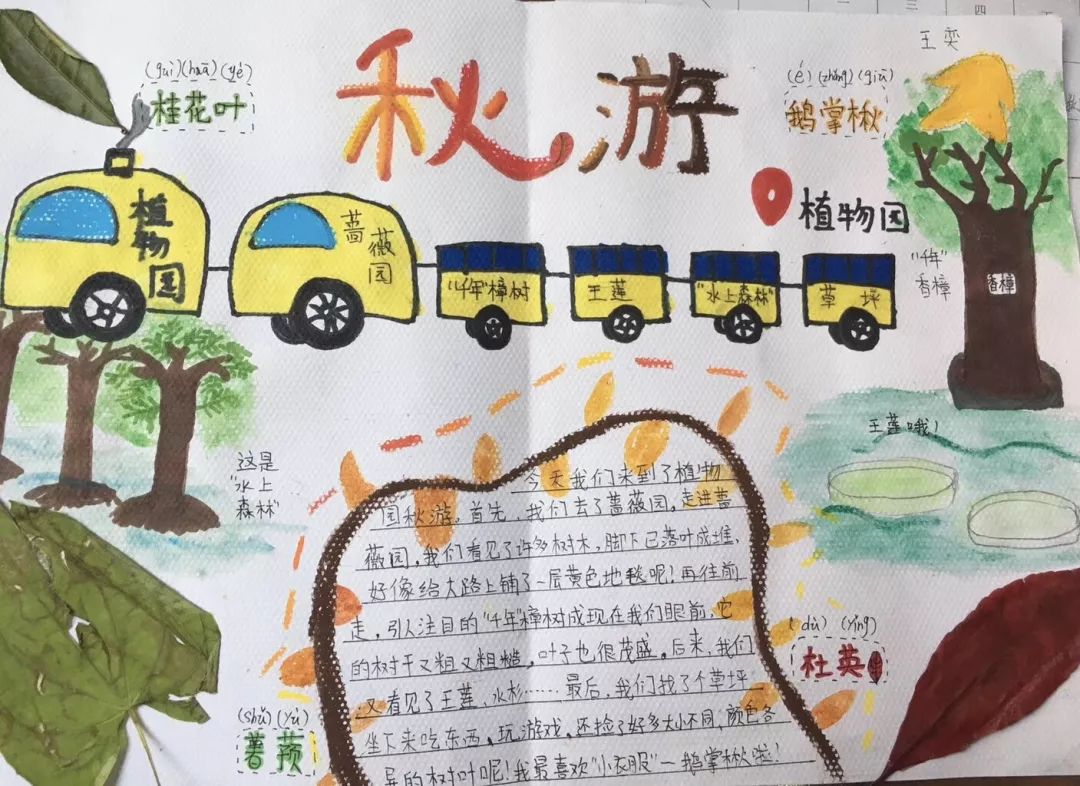 王奕
(guì)(huā)(yé)
桂花叶
秋游
(é)(zhǎng)(qiū)
鹅掌楸
植物园
植物园
蔷薇园
"千年"樟树
王莲
"水上森林"
草坪
"千年"
香樟
香樟
王莲哦!
这是
"水上
森林"
今天我们来到了植物
园秋游。首先,我们去了蔷薇园,走进蔷
薇园,我们看见了许多树木,脚下已落叶成堆,
好像给大路上铺了一层黄色地毯呢!再往前
走,引人注目的"千年"樟树成现在我们眼前,它
的树干又粗又粗糙,叶子也很茂盛。后来,我们
又看见了王莲、水杉……最后,我们找了个草坪
坐下来吃东西,玩游戏,还捡了好多大小不同,颜色各
异的树叶呢!我最喜欢"小衣服"—鹅掌楸啦!
(dù)(yíng)
杜英
(shǔ)(yù)
薯蓣